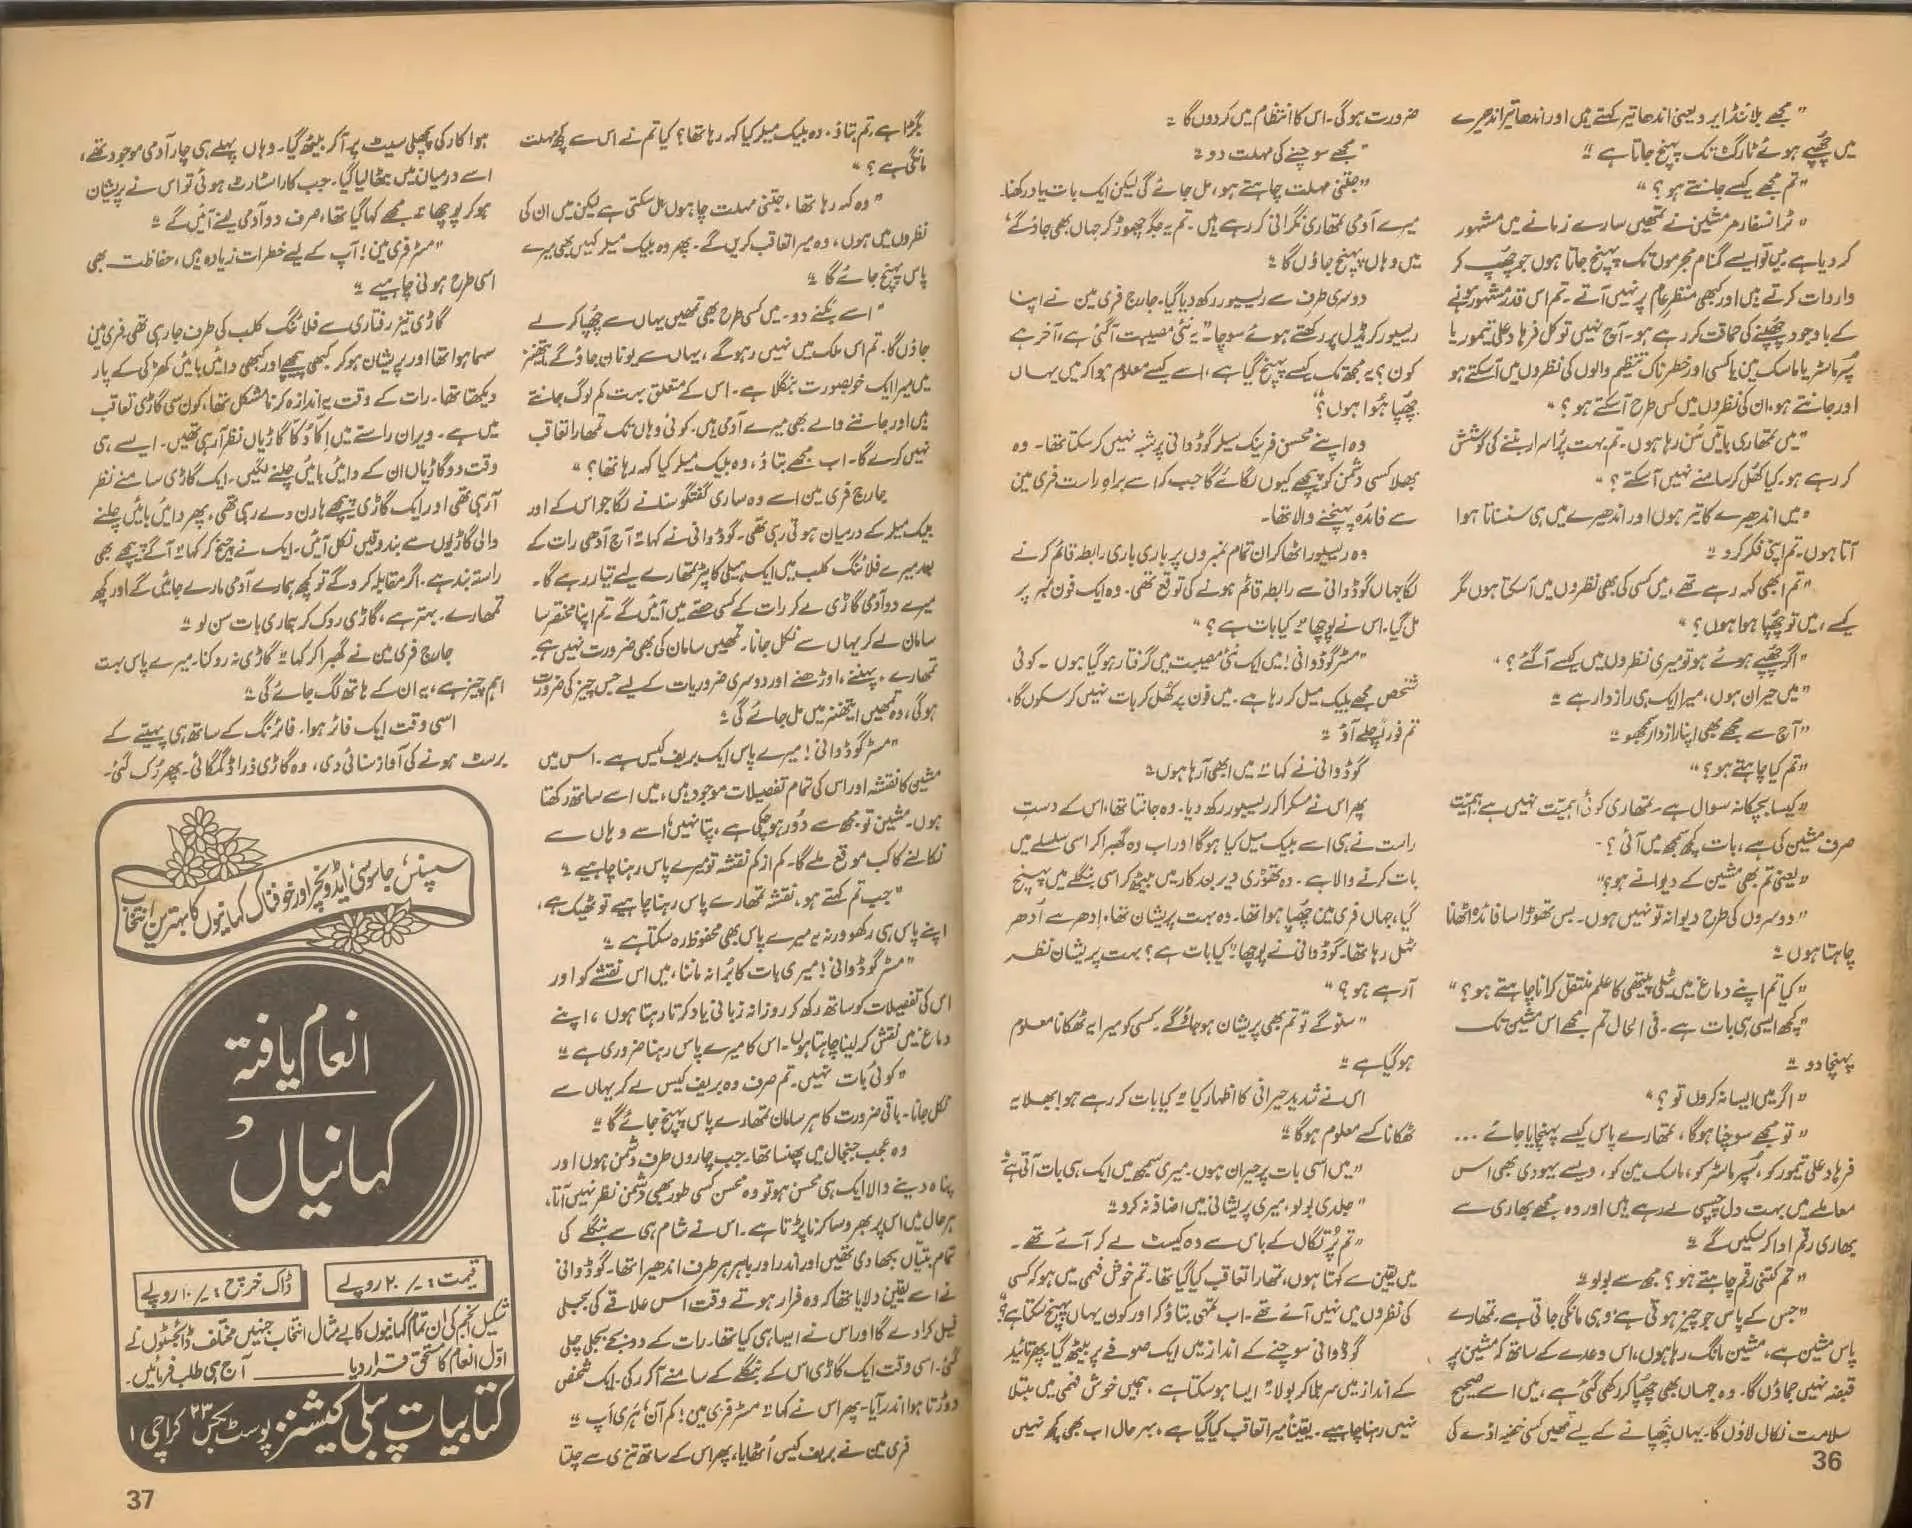 ”مجھے بلائنڈ ایرو یعنی اندھا تیر کہتے ہیں اور اندھا تیر اندھیرے
میں چھپے ہوئے ٹارگٹ تک پہنچ جاتا ہے“
”تم مجھے کیسے جانتے ہو؟“
”ٹرانسفارمر مشین نے تمھیں سارے زمانے میں مشہور
کر دیا ہے میں تو ایسے گمنام مجرموں تک پہنچ جاتا ہوں جو چھپ کر
واردات کرتے ہیں اور کبھی منظرِ عام پر نہیں آتے۔ تم اس قدر مشہور ہونے
کے باوجود چھپنے کی حماقت کر رہے ہو۔ آج نہیں تو کل فرہاد علی تیمور یا
سپر ماسٹر یا ماسک مین یا کسی اور خطرناک تنظیم والوں کی نظروں میں آسکتے ہو
اور جانتے ہو، ان کی نظروں میں کس طرح آسکتے ہو؟“
”میں تمھاری باتیں سُن رہا ہوں۔ تم بہت پُراسرار بننے کی کوشش
کر رہے ہو۔ کیا کھل کر سامنے نہیں آسکتے؟“
”میں اندھیرے کا تیر ہوں اور اندھیرے میں ہی سنسناتا ہوا
آتا ہوں۔ تم اپنی فکر کرو“
”تم ابھی کہہ رہے تھے، میں کسی کی بھی نظروں میں آسکتا ہوں مگر
کیسے، میں تو چھپا ہوا ہوں؟“
”اگر چھپے ہوئے ہو تو میری نظروں میں کیسے آگئے؟“
”میں حیران ہوں، میرا ایک ہی رازدار ہے“
”آج سے مجھے بھی اپنا رازدار سمجھو“
”تم کیا چاہتے ہو؟“
”کیسا بچکانہ سوال ہے۔ تمھاری کوئی اہمیت نہیں ہے اہمیت
صرف مشین کی ہے، بات کچھ سمجھ میں آئی؟“
”یعنی تم بھی مشین کے دیوانے ہو؟“
”دوسروں کی طرح دیوانہ تو نہیں ہوں۔ بس تھوڑا سا فائدہ اٹھانا
چاہتا ہوں“
”کیا تم اپنے دماغ میں ٹیلی پیتھی کا علم منتقل کرانا چاہتے ہو؟“
”کچھ ایسی ہی بات ہے۔ فی الحال تم مجھے اس مشین تک
پہنچا دو“
”اگر میں ایسا نہ کروں تو؟“
”تو مجھے سوچنا ہوگا، تمھارے پاس کیسے پہنچایا جائے ...
فرہاد علی تیمور کو، سپر ماسٹر کو، ماسک مین کو، ویسے یہودی بھی اس
معاملے میں بہت دل چسپی لے رہے ہیں اور وہ مجھے بھاری سے
بھاری رقم ادا کر سکیں گے“
”تم کتنی رقم چاہتے ہو؟ مجھ سے بولو“
”جس کے پاس جو چیز ہوتی ہے وہی مانگی جاتی ہے، تمھارے
پاس مشین ہے، مشین مانگ رہا ہوں، اس وعدے کے ساتھ کہ مشین پر
قبضہ نہیں جماؤں گا۔ وہ جہاں بھی چھپا کر رکھی گئی ہے، میں اسے صحیح
سلامت نکال لاؤں گا۔ یہاں چھپانے کے لیے تمھیں کسی خفیہ اڈے کی
36
ضرورت ہوگی۔ اس کا انتظام میں کر دوں گا“
”مجھے سوچنے کی مہلت دو“
”جتنی مہلت چاہتے ہو، مل جائے گی لیکن ایک بات یاد رکھنا۔
میرے آدمی تمھاری نگرانی کر رہے ہیں۔ تم یہ جگہ چھوڑ کر جہاں بھی جاؤ گے
میں وہاں پہنچ جاؤں گا“
دوسری طرف سے ریسیور رکھ دیا گیا۔ جارج فری مین نے اپنا
ریسیور کریڈل پر رکھتے ہوئے سوچا ”یہ نئی مصیبت آگئی ہے، آخر ہے
کون؟ یہ مجھ تک کیسے پہنچ گیا ہے، اسے کیسے معلوم ہوا کہ میں یہاں
چھپا ہُوا ہوں؟“
وہ اپنے محسن فرینک سیلر گوڈوانی پر شبہ نہیں کر سکتا تھا۔ وہ
بھلا کسی دشمن کو پیچھے کیوں لگائے گا جب کہ اسے براہِ راست فری مین
سے فائدہ پہنچنے والا تھا۔
وہ ریسیور اٹھا کر ان تمام نمبروں پر باری باری رابطہ قائم کرنے
لگا جہاں گوڈوانی سے رابطہ قائم ہونے کی توقع تھی۔ وہ ایک فون نمبر پر
مل گیا۔ اس نے پوچھا ”کیا بات ہے؟“
”مسٹر گوڈوانی! میں ایک نئی مصیبت میں گرفتار ہو گیا ہوں۔ کوئی
شخص مجھے بلیک میل کر رہا ہے۔ میں فون پر کھل کر بات نہیں کر سکوں گا،
تم فوراً چلے آؤ“
گوڈوانی نے کہا ”میں ابھی آرہا ہوں“
پھر اس نے مسکرا کر ریسیور رکھ دیا۔ وہ جانتا تھا، اس کے دستِ
راست نے ہی اسے بلیک میل کیا ہوگا اور اب وہ گھبرا کر اسی سلسلے میں
بات کرنے والا ہے۔ وہ تھوڑی دیر بعد کار میں بیٹھ کر اسی بنگلے میں پہنچ
گیا، جہاں فری مین چھپا ہوا تھا۔ وہ بہت پریشان تھا، اِدھر سے اُدھر
ٹہل رہا تھا۔ گوڈوانی نے پوچھا ”کیا بات ہے؟ بہت پریشان نظر
آرہے ہو؟“
”سنو گے تو تم بھی پریشان ہو جاؤ گے۔ کسی کو میرا یہ ٹھکانا معلوم
ہوگیا ہے“
اس نے شدید حیرانی کا اظہار کیا ”کیا بات کر رہے ہو! بھلا یہ
ٹھکانا کسے معلوم ہوگا“
”میں اسی بات پر حیران ہوں۔ میری سمجھ میں ایک ہی بات آتی ہے“
”جلدی بولو، میری پریشانی میں اضافہ نہ کرو“
”تم پُرتگال کے باس سے وہ کیسٹ لے کر آئے تھے۔
میں یقین سے کہتا ہوں، تمھارا تعاقب کیا گیا تھا۔ تم خوش فہمی میں ہو کہ کسی
کی نظروں میں نہیں آئے تھے۔ اب تمہی بتاؤ کہ اور کون یہاں پہنچ سکتا ہے؟“
گوڈوانی سوچنے کے انداز میں ایک صوفے پر بیٹھ گیا، پھر تائید
کے انداز میں سر ہلا کر بولا ”ایسا ہو سکتا ہے، ہمیں خوش فہمی میں مبتلا
نہیں رہنا چاہیے۔ یقیناً میرا تعاقب کیا گیا ہے، بہر حال اب بھی کچھ نہیں
بگڑا ہے، تم بتاؤ، وہ بلیک میلر کیا کہہ رہا تھا؟ کیا تم نے اس سے کچھ مہلت
مانگی ہے؟“
”وہ کہہ رہا تھا، جتنی مہلت چاہوں مل سکتی ہے لیکن میں ان کی
نظروں میں ہوں، وہ میرا تعاقب کریں گے۔ پھر وہ بلیک میلر کہیں بھی میرے
پاس پہنچ جائے گا“
”اسے بکنے دو۔ میں کسی طرح بھی تمھیں یہاں سے چھپا کر لے
جاؤں گا۔ تم اس ملک میں نہیں رہو گے، یہاں سے یونان جاؤ گے، ایتھنز
میں میرا ایک خوبصورت بنگلا ہے۔ اس کے متعلق بہت کم لوگ جانتے
ہیں اور جاننے والے بھی میرے آدمی ہیں۔ کوئی وہاں تک تمھارا تعاقب
نہیں کرے گا۔ اب مجھے بتاؤ، وہ بلیک میلر کیا کہہ رہا تھا؟“
جارج فری مین اسے وہ ساری گفتگو سنانے لگا جو اس کے اور
بلیک میلر کے درمیان ہوتی رہی تھی۔ گوڈوانی نے کہا ”آج آدھی رات کے
بعد میرے فلائنگ کلب میں ایک ہیلی کاپٹر تمھارے لیے تیار رہے گا۔
میرے دو آدمی گاڑی لے کر رات کے کسی حصے میں آئیں گے۔ تم اپنا مختصر سا
سامان لے کر یہاں سے نکل جانا۔ تمھیں سامان کی بھی ضرورت نہیں ہے۔
تمھارے، پہننے، اوڑھنے اور دوسری ضروریات کے لیے جس چیز کی ضرورت
ہوگی، وہ تمھیں ایتھنز میں مل جائے گی“
”مسٹر گوڈوانی! میرے پاس ایک بریف کیس ہے۔ اس میں
مشین کا نقشہ اور اس کی تمام تفصیلات موجود ہیں، میں اسے ساتھ رکھتا
ہوں۔ مشین تو مجھ سے دُور ہو چکی ہے، پتا نہیں اسے وہاں سے
نکالنے کا کب موقع ملے گا۔ کم از کم نقشہ تو میرے پاس رہنا چاہیے“
”جب تم کہتے ہو، نقشہ تمھارے پاس رہنا چاہیے تو ٹھیک ہے،
اپنے پاس ہی رکھو ورنہ یہ میرے پاس بھی محفوظ رہ سکتا ہے“
”مسٹر گوڈوانی! میری بات کا بُرا نہ ماننا، میں اس نقشے کو اور
اس کی تفصیلات کو ساتھ رکھ کر روزانہ زبانی یاد کرتا رہتا ہوں، اپنے
دماغ میں نقش کر لینا چاہتا ہوں۔ اس کا میرے پاس رہنا ضروری ہے“
”کوئی بات نہیں۔ تم صرف وہ بریف کیس لے کر یہاں سے
نکل جانا۔ باقی ضرورت کا ہر سامان تمھارے پاس پہنچ جائے گا“
وہ عجب جنجال میں پھنسا تھا۔ جب چاروں طرف دشمن ہوں اور
پناہ دینے والا ایک ہی محسن ہو تو وہ محسن کسی طور بھی دشمن نظر نہیں آتا،
ہر حال میں اس پر بھروسا کرنا پڑتا ہے۔ اس نے شام ہی سے بنگلے کی
تمام بتیاں بجھا دی تھیں اور اندر اور باہر ہر طرف اندھیرا تھا۔ گوڈوانی
نے اسے یقین دلایا تھا کہ وہ فرار ہوتے وقت اس علاقے کی بجلی
فیل کرا دے گا اور اس نے ایسا ہی کیا تھا۔ رات کے دو بجے بجلی چلی
گئی۔ اسی وقت ایک گاڑی اس کے بنگلے کے سامنے آ کر رکی۔ ایک شخص
دوڑتا ہوا اندر آیا۔ پھر اس نے کہا ”مسٹر فری مین! کم آن، ہَری اَپ“
فری مین نے بریف کیس اُٹھایا، پھر اس کے ساتھ تیزی سے چلتا
ہوا کار کی پچھلی سیٹ پر آ کر بیٹھ گیا۔ وہاں پہلے ہی چار آدمی موجود تھے،
اسے درمیان میں بٹھا لیا گیا۔ جب کار اسٹارٹ ہوئی تو اس نے پریشان
ہو کر پوچھا ”مجھے کہا گیا تھا، صرف دو آدمی لینے آئیں گے“
”مسٹر فری مین! آپ کے لیے خطرات زیادہ ہیں، حفاظت بھی
اسی طرح ہونی چاہیے“
گاڑی تیز رفتاری سے فلائنگ کلب کی طرف جارہی تھی۔ فری مین
سہما ہوا تھا اور پریشان ہو کر کبھی پیچھے اور کبھی دائیں بائیں کھڑکی کے پار
دیکھتا تھا۔ رات کے وقت یہ اندازہ کرنا مشکل تھا، کون سی گاڑی تعاقب
میں ہے۔ ویران راستے میں اِکّا دُکّا گاڑیاں نظر آرہی تھیں۔ ایسے ہی
وقت دو گاڑیاں ان کے دائیں بائیں چلنے لگیں۔ ایک گاڑی سامنے نظر
آرہی تھی اور ایک گاڑی پیچھے ہارن دے رہی تھی، پھر دائیں بائیں چلنے
والی گاڑیوں سے بندوقیں نکل آئیں۔ ایک نے چیخ کر کہا ”آگے پیچھے بھی
راستہ بند ہے۔ اگر مقابلہ کرو گے تو کچھ ہمارے آدمی مارے جائیں گے اور کچھ
تمھارے۔ بہتر ہے، گاڑی روک کر ہماری بات سن لو“
جارج فری مین نے گھبرا کر کہا ”گاڑی نہ روکنا۔ میرے پاس بہت
اہم چیز ہے، یہ ان کے ہاتھ لگ جائے گی“
اسی وقت ایک فائر ہوا۔ فائرنگ کے ساتھ ہی پہیے کے
برسٹ ہونے کی آواز سنائی دی، وہ گاڑی ذرا ڈگمگائی۔ پھر رُک گئی۔
سسپنس جاسوسی ایڈونچر اور خوفناک کہانیوں کا بہترین انتخاب
انعام یافتہ
کہانیاں
قیمت : /۲۰ روپے
ڈاک خرچ : /۱۰ روپے
شکیل انجم کی ان تمام کہانیوں کا بے مثال انتخاب جنہیں مختلف ڈائجسٹوں نے
اوّل انعام کا مستحق قرار دیا ـــــــ آج ہی طلب فرمائیں۔
کتابیات پبلی کیشنز پوسٹ بکس ۲۳ کراچی ۱
37